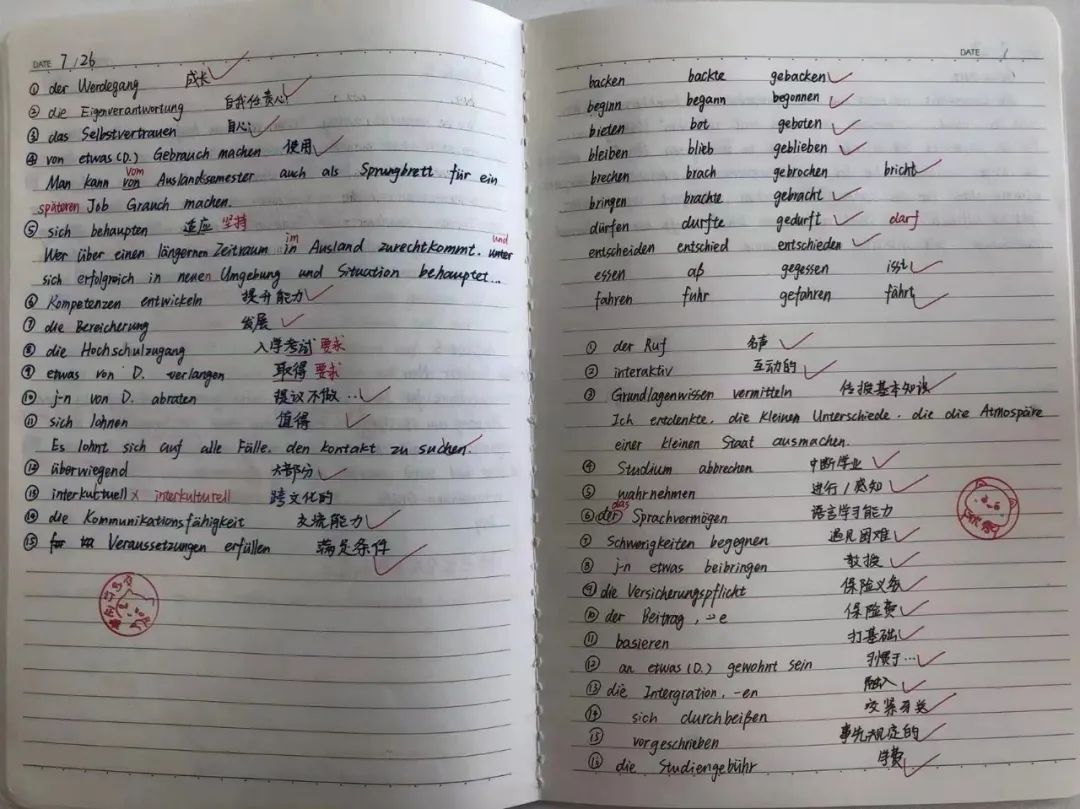 DATE 7/26
① der Werdegang 成长
② die Eigenverantwortung 自我任责心
③ das Selbstvertrauen 自心
④ von etwas (D.) Gebrauch machen 使用
vom
Man kann von Auslandsemester auch als Sprungbrett für ein
späteren Job Grauch machen.
⑤ sich behaupten 适应 坚持
im und
Wer über einen längernen Zeitraum in Ausland zurechtkommt. unter
sich erfolgreich in neuen Umgebung und Situation behauptet...
⑥ Kompetenzen entwickeln 提升能力
⑦ die Bereicherung 发展
⑧ die Hochschulzugang 入学考试 要求
⑨ etwas von D. verlangen 取得 要求
⑩ j-n von D. abraten 提议不做 …
⑪ sich lohnen 值得
Es lohnt sich auf alle Fälle, den kontakt zu suchen.
⑫ überwiegend 大部分
⑬ interkuktuell x interkulturell 跨文化的
⑭ die Kommunikationsfähigkeit 交流能力
⑮ Veraussetzungen erfüllen 满足条件
DATE
backen backte gebacken
beginn begann begonnen
bieten bot geboten
bleiben blieb geblieben
brechen brach gebrochen bricht
bringen brachte gebracht
dürfen durfte gedurft darf
entscheiden entschied entschieden
essen aß gegessen isst
fahren fuhr gefahren fährt
① der Ruf 名声
② interaktiv 互动的
③ Grundlagenwissen vermitteln 传授基本知识
Ich entdenkte, die kleinen Unterschiede, die die Atmospäre
einer kleinen Staat ausmachen.
④ Studium abbrechen 中断学业
⑤ wahrnehmen 进行/感知
das
⑥ der Sprachvermögen 语言学习能力
⑦ Schwerigkeiten begegnen 遇见困难
⑧ j-n etwas beibringen 教授
⑨ die Versicherungspflicht 保险义务
⑩ der Beitrag, ⸚e 保险费
⑪ basieren 打基础
⑫ an etwas (D.) gewohnt sein 习惯于…
⑬ die Intergration, -en 融入
⑭ sich durchbeißen 咬紧牙关
⑮ vorgeschrieben 事先规定的
⑯ die Studiengebühr 学费